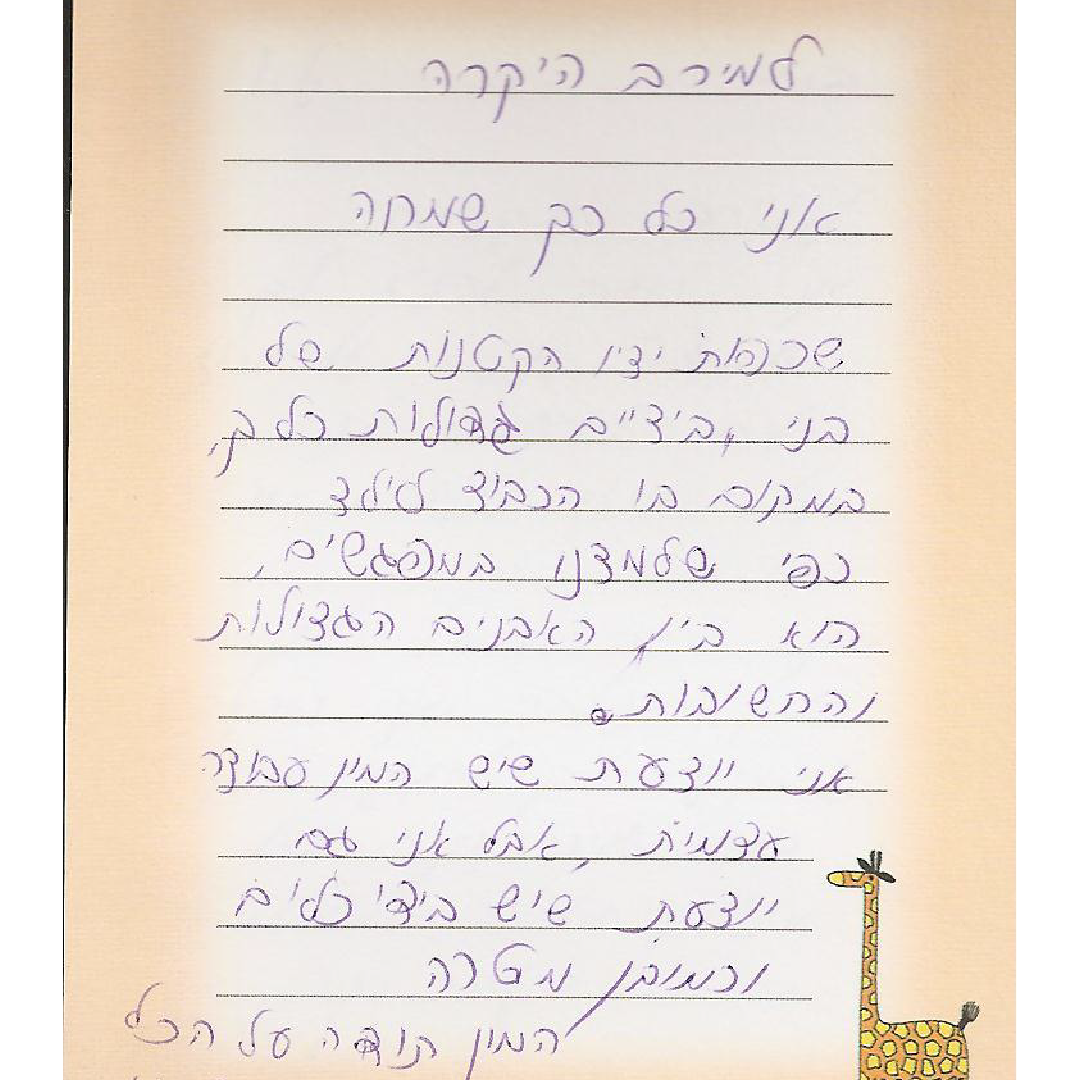 למירב היקרה
אני כל כך שמחה
שכפות ידיו הקטנות של
בני, בידיים גדולות כל כך,
במקום בו הכביד לילד
כפי שלמדנו במפגשים,
הוא בין האבנים הגדולות
והחשובות.
אני יודעת שיש המון עבודה
עצמית, אבל אני גם
יודעת שיש בידי כלים
וכמובן מטרה
המון תודה על הכל